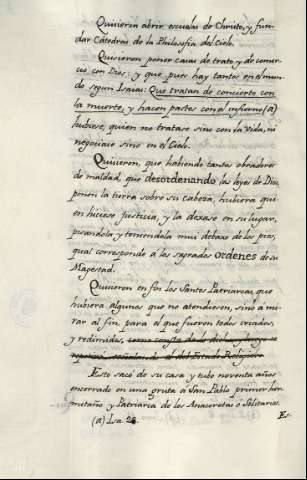 Quisieron abrir escuelas de Christo, y fun-
dar Cátedras de la Philosofia del Cielo.
Quisieron poner casas de trato, y de comer-
cio con Dios: y que pues hay tantos en el mun-
do segun Isaias: Que tratan de concierto con
la muerte, y hacen pactos con el infierno, (a)
hubiese, quien no tratase sino con la Vida, ni
negociase sino en el Cielo.
Quisieron, que habiendo tantos obradores
de maldad, que desordenando las leyes de Dios,
ponen la tierra sobre su cabeza, hubiera qui-
en hiciese justicia, y la dexase en su lugar,
pisandola, y teniendola mui debaxo de los pies,
qual corresponde à las sagradas ordenes de su
Magestad.
Quisieron en fin los Santos Patriarcas, que
hubiera algunos que no atendiesen, sino á mi-
rar al fin para el que fueron todos criados,
y redimidos,
del Estado Religioso
Esto sacó de su casa y tubo noventa años
encerrado en una gruta á San Pablo primer her-
mitaño, y Patriarca de los Anacoretas ó Solitarios.
(a) Isa. 28.
Es-